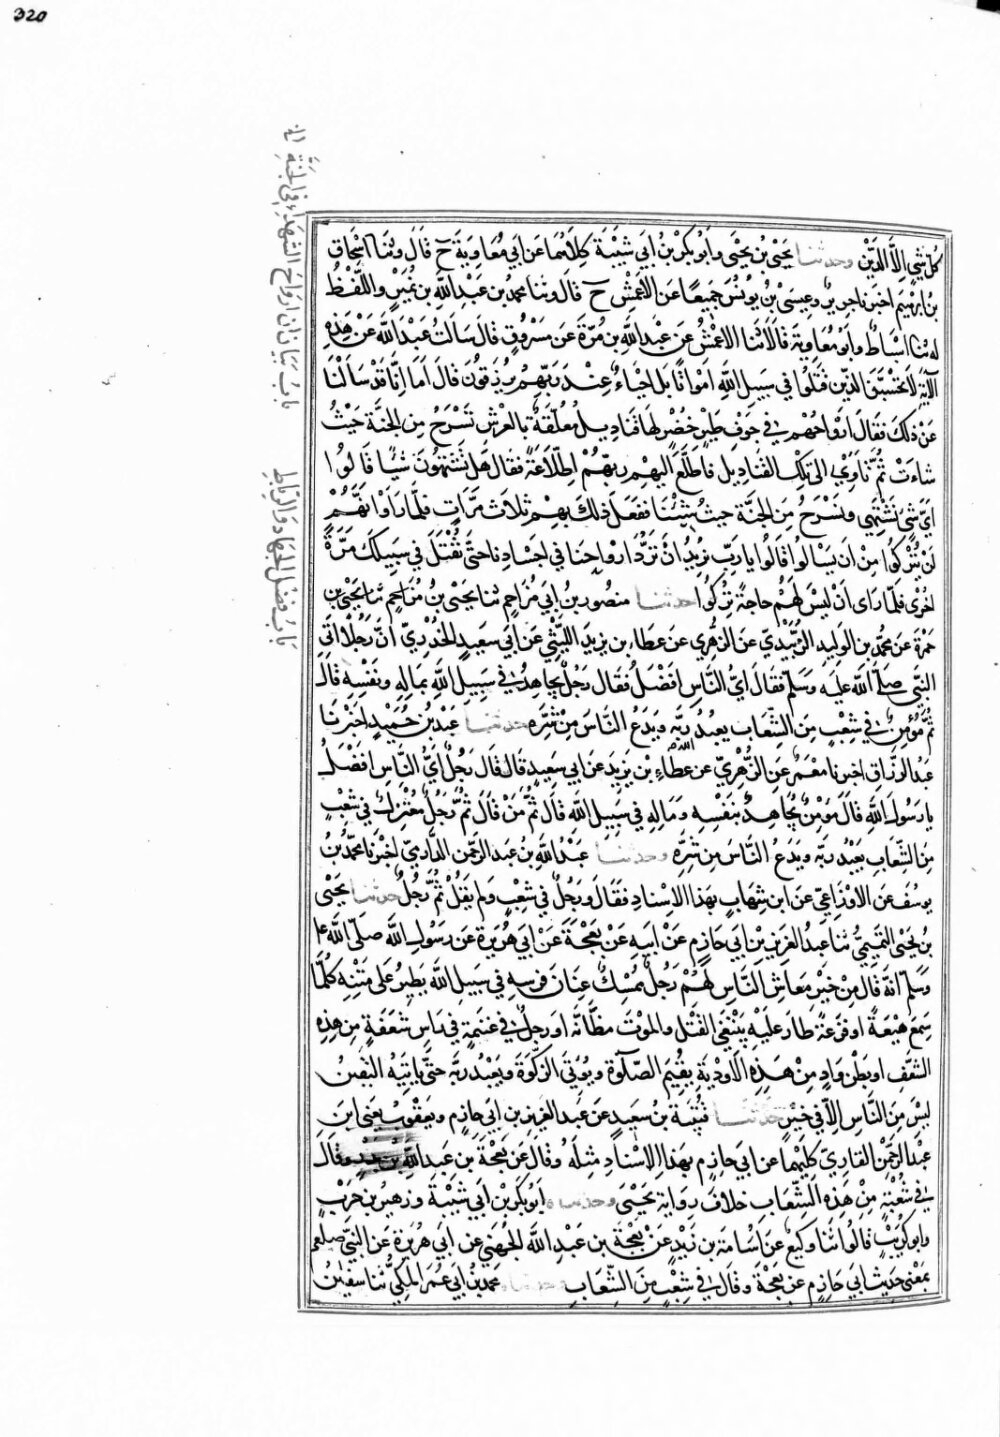 320
باب بيان ان ارواح الشهداء في الجنة الخ
باب فضل الجهاد والرباط
كل شي الا الدين وحدثنا يحيى بن يحيى وابو بكر بن ابي شيبة كلاهما عن ابي معاوية ح قال وثنا اسحاق
بن ابرهيم اخبرنا جرير وعيسى بن يونس جميعا عن الاعمش ح قال وثنا محمد بن عبد الله بن نمير واللفظ
له ثنا اسباط وابو معاوية قالا ثنا الاعمش عن عبد الله بن مرة عن مسروق قال سالت عبد الله عن هذه
الآية لا تحسبن الذين قتلوا في سبيل الله امواتا بل احياء عند ربهم يرزقون قال اما انا قد سالنا
عن ذلك فقال ارواحهم في جوف طير خضر لها قناديل معلقة بالعرش تسرح من الجنة حيث
شاءت ثم تاوي الى تلك القناديل فاطلع اليهم ربهم اطلاعة فقال هل تشتهون شيئا قالوا
اي شي نشتهي ونسرح من الجنة حيث شئنا ففعل ذلك بهم ثلاث مرات فلما راوا انهم
لن يتركوا من ان يسالوا قالوا يا رب نريد ان ترد ارواحنا في اجسادنا حتى نقتل في سبيلك مرة
اخرى فلما راى ان ليس لهم حاجة تركوا حدثنا منصور بن ابي مزاحم ثنا يحيى بن
حمزة عن محمد بن الوليد الزبيدي عن الزهري عن عطاء بن يزيد الليثي عن ابي سعيد الخدري ان رجلا اتى
النبي صلى الله عليه وسلم فقال اي الناس افضل فقال رجل يجاهد في سبيل الله بماله ونفسه قال
ثم مؤمن في شعب من الشعاب يعبد ربه ويدع الناس من شره حدثنا عبد بن حميد اخبرنا
عبد الرزاق اخبرنا معمر عن الزهري عن عطاء بن يزيد عن ابي سعيد قال قال رجل اي الناس افضل
يا رسول الله قال مؤمن يجاهد بنفسه وماله في سبيل الله قال ثم من قال ثم رجل معتزل في شعب
من الشعاب يعبد ربه ويدع الناس من شره وحدثنا عبد الله بن عبد الرحمن الدارمي اخبرنا محمد بن
يوسف عن الاوزاعي عن ابن شهاب بهذا الاسناد فقال ورجل في شعب ولم يقل ثم رجل حدثنا يحيى
بن يحيى التميمي ثنا عبد العزيز بن ابي حازم عن ابيه عن بعجة عن ابي هريرة عن رسول الله صلى الله
وسلم انه قال من خير معاش الناس لهم رجل ممسك عنان فرسه في سبيل الله يطير على متنه كلما
سمع هيعة او فزعة طار عليه يبتغي القتل والموت مظانه او رجل في غنيمة في راس شعفة من هذه
الشعف او بطن واد من هذه الاودية يقيم الصلوة ويوتي الزكوة ويعبد ربه حتى ياتيه اليقين
ليس من الناس الا في خير حدثنا قتيبة بن سعيد عن عبد العزيز بن ابي حازم ويعقوب يعني ابن
عبد الرحمن القاري كليهما عن ابي حازم بهذا الاسناد مثله وقال عن بعجة بن عبد الله بن بدر وقال
في شعبة من هذه الشعاب خلاف رواية يحيى وحدثناه ابو بكر بن ابي شيبة وزهير بن حرب
وابو كريب قالوا ثنا وكيع عن اسامة بن زيد عن بعجة بن عبد الله الجهني عن ابي هريرة عن النبي صلعم
بمعنى حديث ابي حازم عن بعجة وقال في شعب من الشعاب وحدثنا محمد بن ابي عمر المكي ثنا سفين